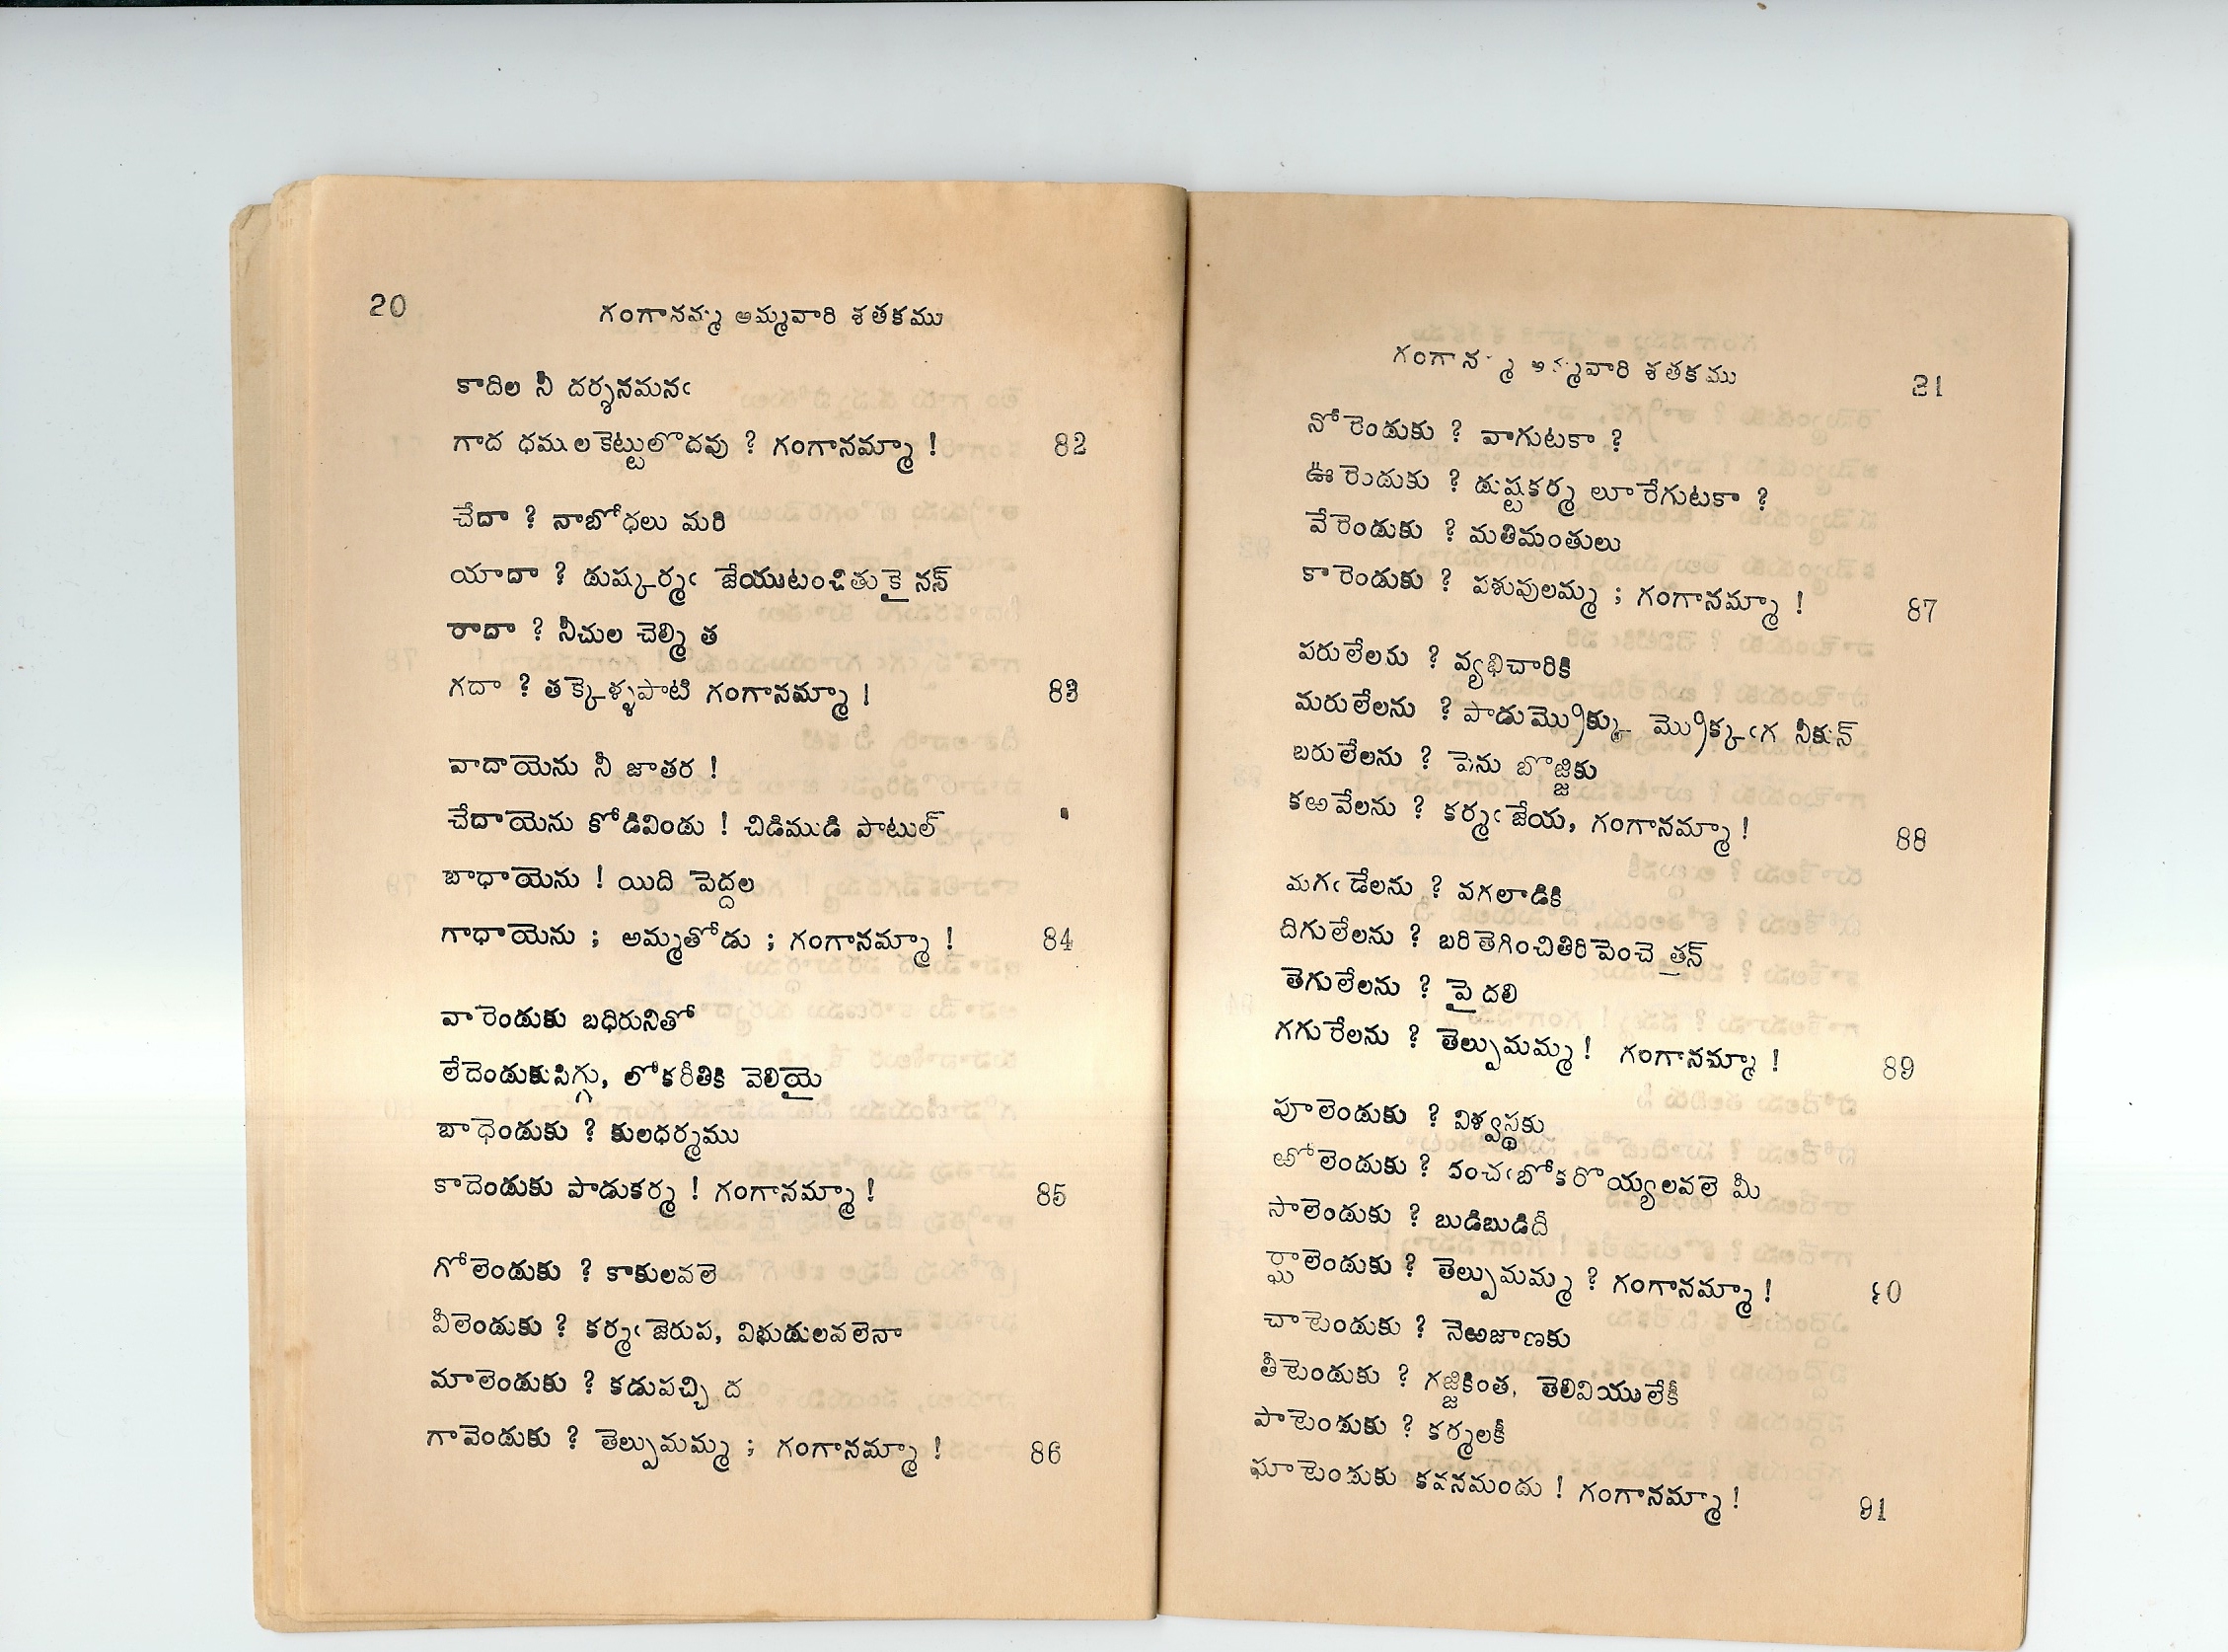 20
గంగానమ్మ అమ్మవారి శతకము
కాదిల నీ దర్శనమనఁ
గాద ధమలకెట్టులొదవు ? గంగానమ్మా ! 82
చేదా ? నాబోధలు మరి
యాదా ? డుష్కర్మఁ జేయుటంచితుకై నన్
రాదా ? నీచుల చెల్మి త
గదా ? తక్కెళ్ళపాటి గంగానమ్మా ! 83
వాదాయెను నీ జాతర !
చేదాయెను కోడివిండు ! చిడిముడి పాటుల్
బాధాయెను ! యిది పెద్దల
గాధాయెను ; అమ్మతోడు ; గంగానమ్మా ! 84
వారెండుకు బధిరునితో
లేదెండుకుసిగ్గు, లోకరీతికి వెలియై
బాధెండుకు ? కులధర్మము
కాదెండుకు పాడుకర్మ ! గంగానమ్మా ! 85
గోలెండుకు ? కాకులవలె
వీలెండుకు ? కర్మఁ జెరుప, విభుడులవలెనా
మాలెండుకు ? కడుపచ్చి ద
గావెండుకు ? తెల్పుమమ్మ ; గంగానమ్మా ! 86
గంగాన మ్మ అమ్మవారి శతకము
21
నోరెండుకు ? వాగుటకా ?
ఊరెందుకు ? డుష్టకర్మ లూరేగుటకా ?
వేరెండుకు ? మతిమంతులు
కారెండుకు ? పశువులమ్మ ; గంగానమ్మా ! 87
పరులేలను ? వ్యభిచారికి
మరులేలను ? పాడుమ్రొక్కు మ్రొక్కఁగ నీకున్
బరులేలను ? పెను బొజ్జకు
కఱవేలను ? కర్మఁ జేయ, గంగానమ్మా ! 88
మగఁ డేలను ? వగలాడికి
దిగులేలను ? బరితెగించితిరిపెంచె త్తన్
తెగులేలను ? పై దలి
గగురేలను ? తెల్పుమమ్మ ! గంగానమ్మా ! 89
పూలెండుకు ? విశ్వస్థకు
ఱోలెండుకు ? దంచఁబోకరొయ్యలవలె మీ
సాలెండుకు ? బుడిబుడిదీ
ర్ఘాలెండుకు ? తెల్పుమమ్మ ? గంగానమ్మా ! 90
చాటెండుకు ? నెఱజాణకు
తీటెండుకు ? గజ్జికింత, తెలివియులేకీ
పాటెండుకు ? కర్మలకీ
ఘాటెందుకు కవనమందు ! గంగానమ్మా ! 91